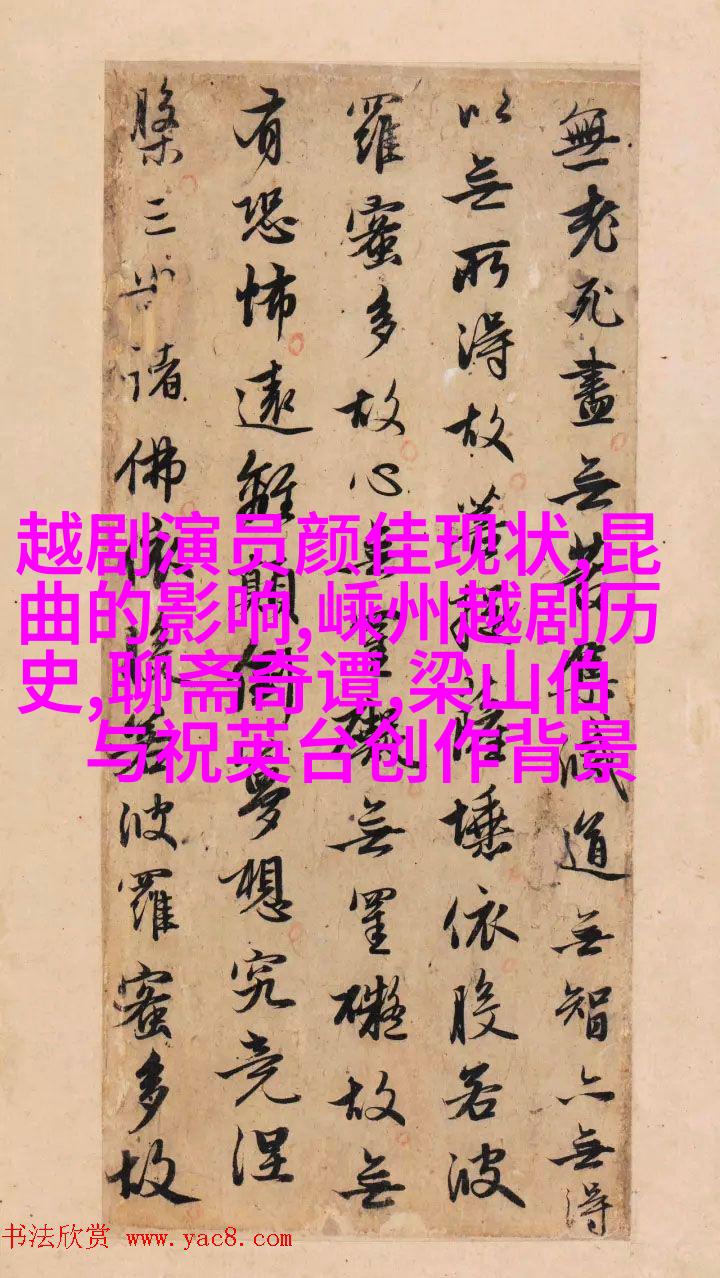 無老死盡无苦集滅道无智亦无得
以无所得故菩提薩埵依般若波
羅蜜多故心無罣礙无罣礙故无
有恐怖遠離顛倒夢想究竟涅
槃三世諸佛依般若波羅蜜多故
越剧演员颜佳现状,昆
曲的影响,嵊州越剧历
史,聊斋奇谭,梁山伯
与祝英台创作背景
书法欣赏 www.yac8.com